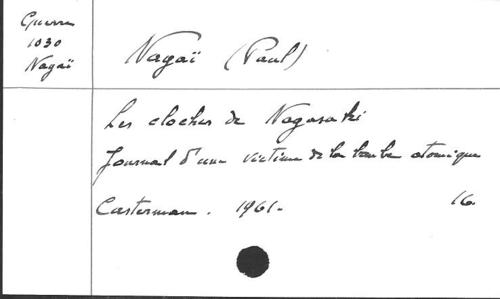 Guerre
1030
Nagaï
Nagaï (Paul)
Les cloches de Nagasaki
Journal d'une victime de la bombe atomique
Casterman. 1961. 16.